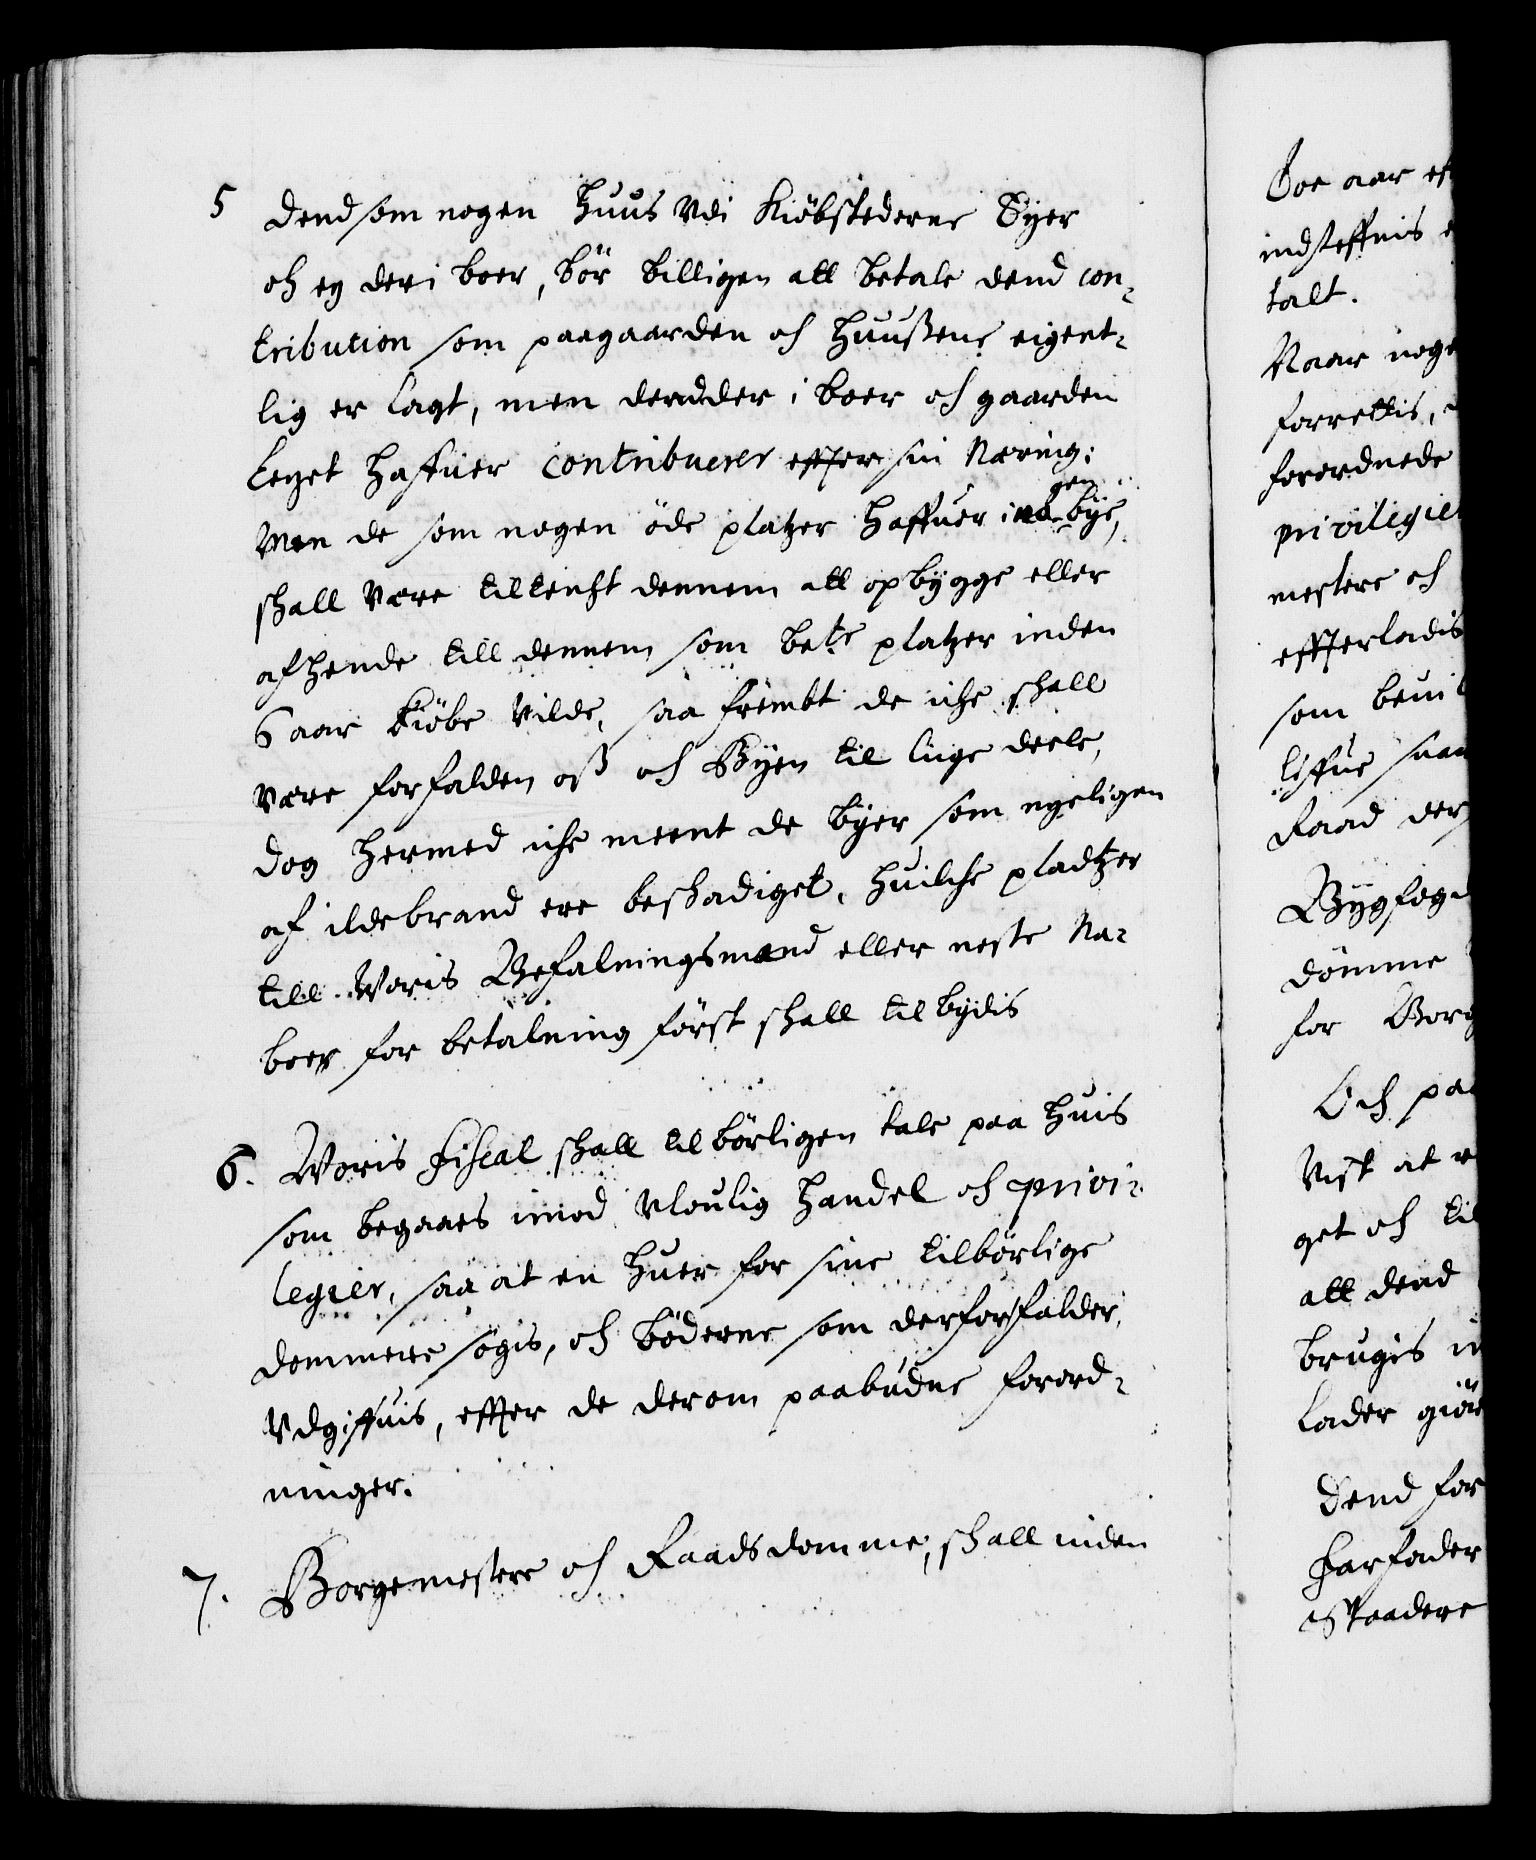 5 Dend som nogen Huus Vdi Kiöbstederne Eyer
och ey deri boer, bör billigen att betale dend con-
tribution som paagaarden och Huußene eigent-
lig er lagt, men dend der i boer och gaarden
Leyet haffuer contribuerer effter sin Næring;
Men de som nogen öde platzer haffuer i
gen
bÿe,
shall være tiltenkt dennem att opbÿgge eller
afhende till dennem som bete platzer inden
6 aar kiöbe vilde, saa frembt de iche shall
være forfalden oß och Bÿen til lige deele,
dog hermed iche meent de bÿer som nyeligen
af ildebrand ere beskadiget, huilche pladtzer
till Woris Befalningsmænd eller neste Na-
boer for betalning först shall tilbÿdis
6. Woris Fiscal shall tilbörligen tale paa huis
som begaaes imod Vlovlig handel och privi-
legier, saa at en huer for sine tilbörlige
dommere sögis, och böderne som derfor falder,
Vdgiffuis, effter de derom paabudne forord-
ninger.
7. Borgemestere och Raads domme, shall inden
Toe aar
indsteffnis
talt.
Naar
forrettis,
forordnede
mestere och
som
liffue
Raad
dömme
for
Och
Vist at
get och
att dend
brugis
Lader
Dend for
Farfader